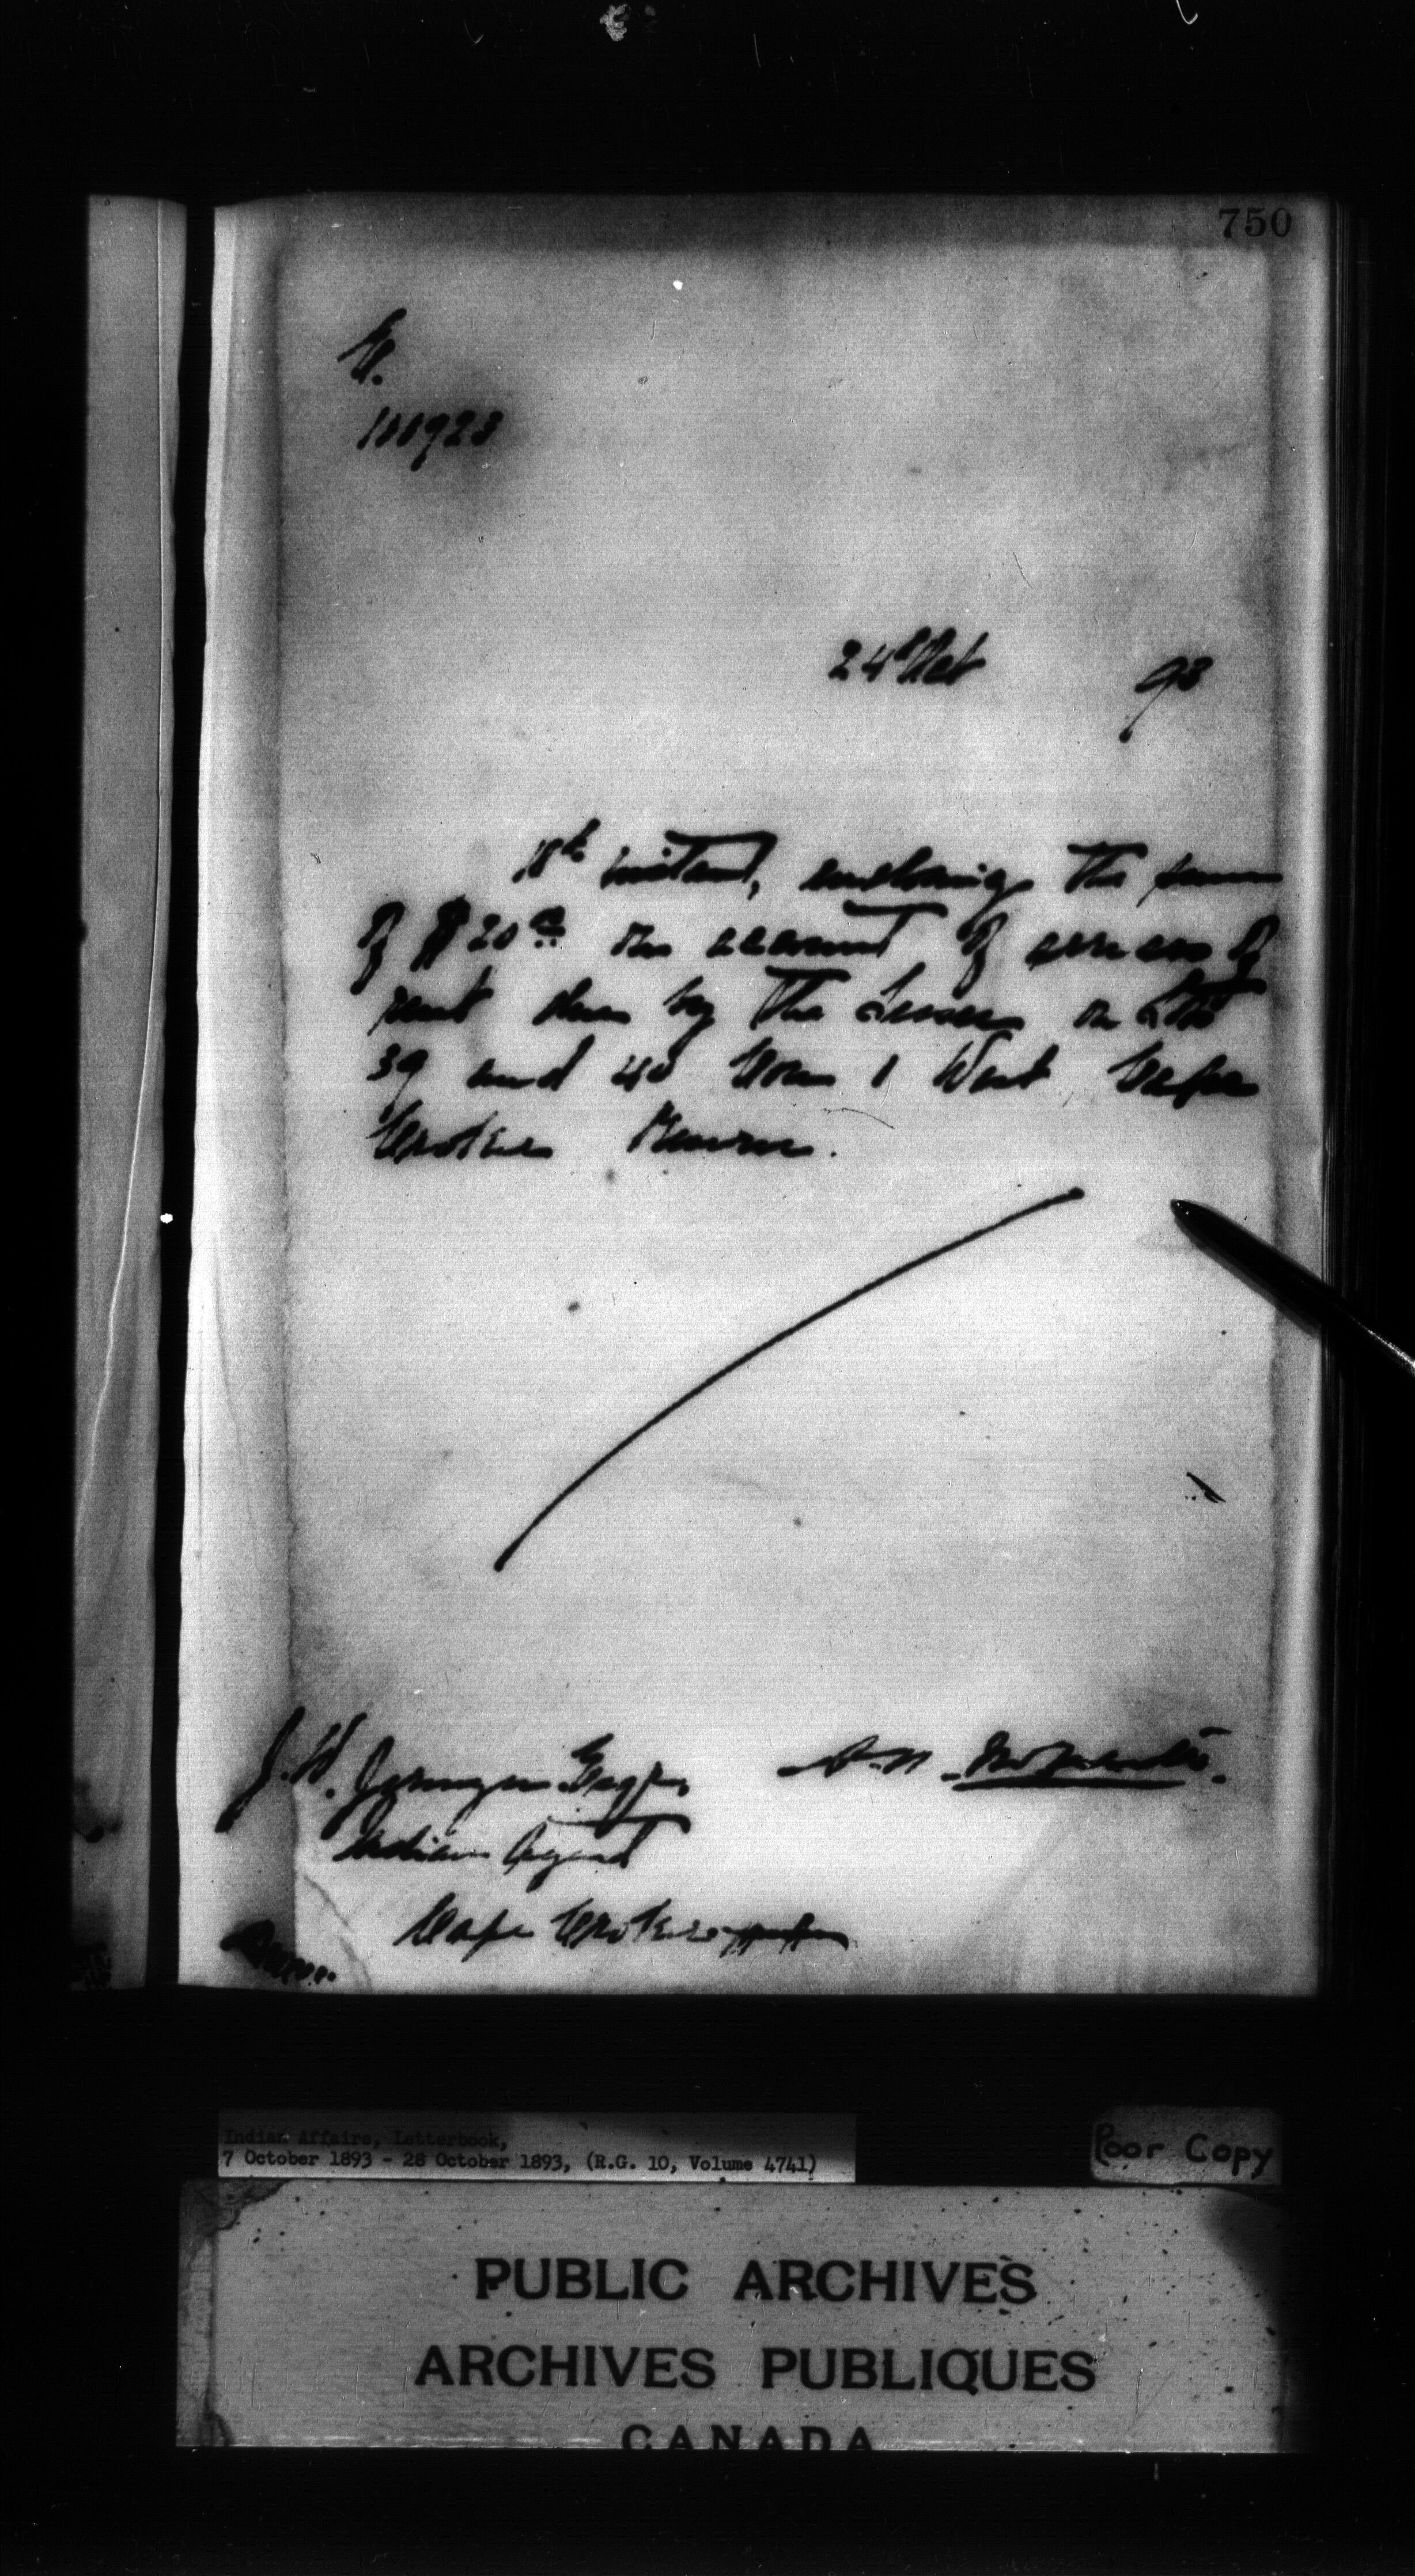 750
110923
24 Oct 93
18th instant, enclosing the sum
of $20.00 on account of arrears of
rent due by the Lessee on Lots
39 and 40 Con 1 West Cape
Croker Reserve.
J. W. Jermyn Esqr.
Indian Agent
Cape Croker
Indian Affairs, Letterbook,
7 October 1893 - 28 October 1893, (R.G. 10, Volume 4741)
Poor Copy
PUBLIC ARCHIVES
ARCHIVES PUBLIQUES
CANADA